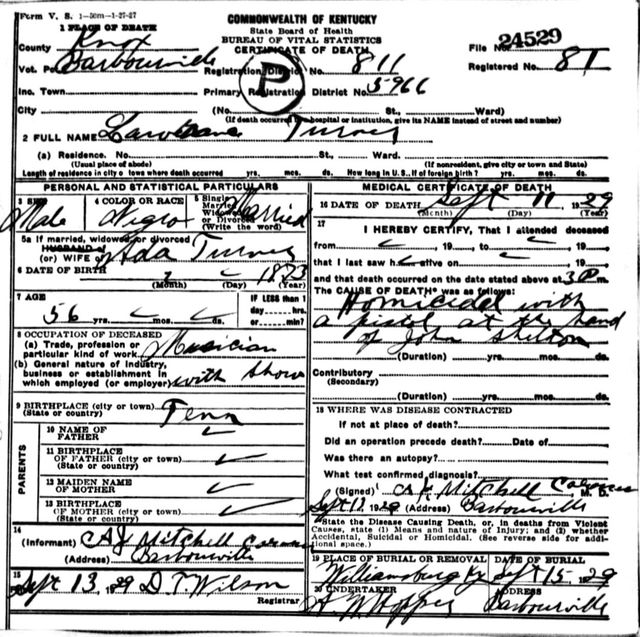 Form V. S. 1-50m-1-27-27
COMMONWEALTH OF KENTUCKY
State Board of Health
BUREAU OF VITAL STATISTICS
CERTIFICATE OF DEATH
1 PLACE OF DEATH
County Knox
Vot. Pct. Barbourville
Inc. Town
City
Registration District No. 811
Primary Registration District No. 5966
P
File No. 24529
Registered No. 81
(No. St., Ward)
(If death occurred in hospital or institution, give its NAME instead of street and number)
2 FULL NAME Turner
(a) Residence. No. St., Ward.
(Usual place of abode) (If nonresident, give city or town and State)
Length of residence in city or town where death occurred yrs. mos. ds. How long in U. S., if of foreign birth? yrs. mos. ds.
PERSONAL AND STATISTICAL PARTICULARS
3 SEX Male
4 COLOR OR RACE Negro
5 Single Married Widowed or Divorced (Write the word) Married
5a If married, widowed or divorced
HUSBAND of
(or) WIFE of Ada Turner
6 DATE OF BIRTH 1873
(Month) (Day) (Year)
7 AGE
56 yrs. mos. ds.
IF LESS than 1
day hrs.
or min.
8 OCCUPATION OF DECEASED
(a) Trade, profession or
particular kind of work Musician
(b) General nature of industry,
business or establishment in
which employed (or employer) with Show
9 BIRTHPLACE (city or town) Tenn
(State or country)
PARENTS
10 NAME OF
FATHER ✓
11 BIRTHPLACE
OF FATHER (city or town) ✓
(State or country)
12 MAIDEN NAME
OF MOTHER ✓
13 BIRTHPLACE
OF MOTHER (city or town) ✓
(State or country)
14
(Informant) A J Mitchell Coroner
(Address) Barbourville
15
Sept 13 1929 D T Wilson
Registrar
MEDICAL CERTIFICATE OF DEATH
16 DATE OF DEATH Sept 11 1929
(Month) (Day) (Year)
17
I HEREBY CERTIFY, That I attended deceased
from ✓ 19 to ✓ 19
that I last saw h alive on ✓ 19
and that death occurred on the date stated above at 3 P m.
The CAUSE OF DEATH* was as follows:
Homicidal with
a pistol at the hand
of John Shelton
(Duration) yrs. mos. ds.
Contributory
(Secondary)
(Duration) yrs. mos. ds.
18 WHERE WAS DISEASE CONTRACTED
If not at place of death?
Did an operation precede death? Date of
Was there an autopsy?
What test confirmed diagnosis?
(Signed) A J Mitchell Coroner M. D.
Sept 13 1929 (Address) Barbourville
State the Disease Causing Death, or, in deaths from Violent
Causes, state (1) Means and nature of Injury; and (2) whether
Accidental, Suicidal or Homicidal. (See reverse side for addi-
tional space.)
19 PLACE OF BURIAL OR REMOVAL
Williamsburg Ky
DATE OF BURIAL
Sept 15 1929
20 UNDERTAKER
ADDRESS
Barbourville